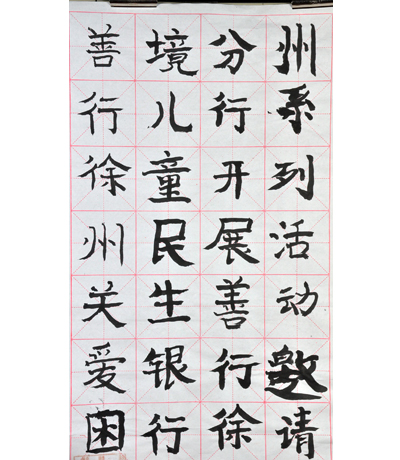 善行徐州关爱困
境儿童民生银行
分行开展善行徐
州系列活动邀请